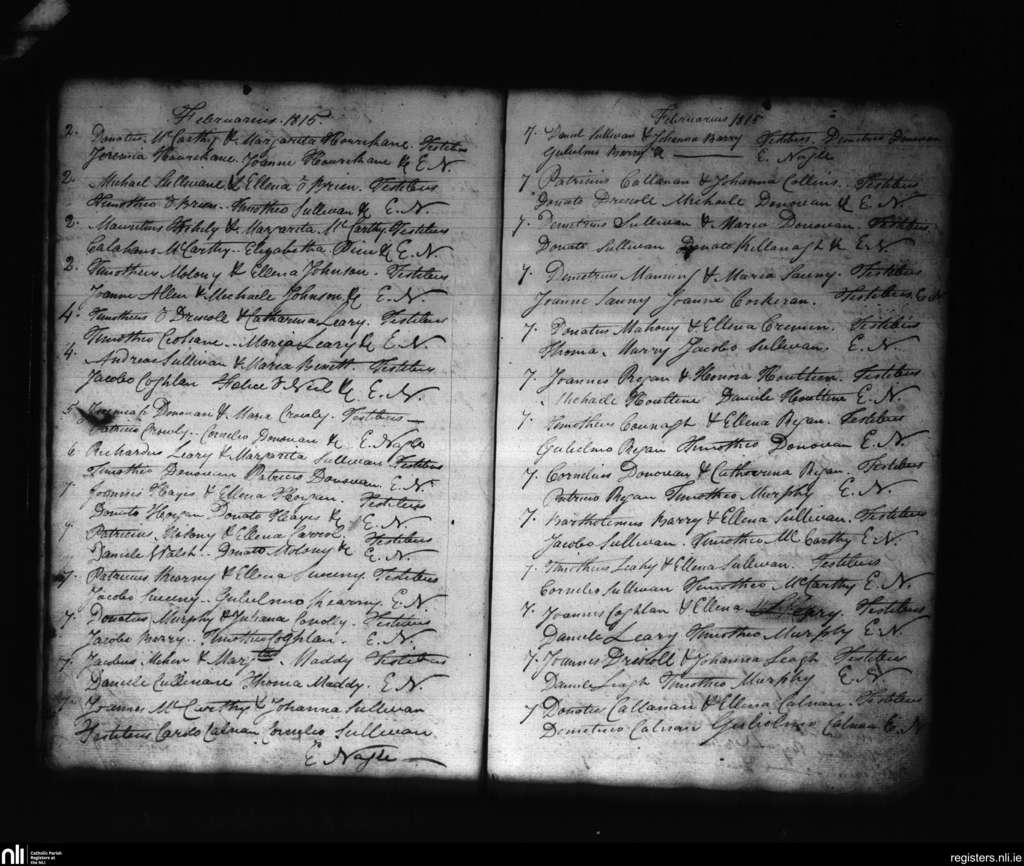 Februarius 1815
2. Donatus McCarthy & Margarita Hourihane. Testibus
Jeremia Hourihane. Joanne Hourihane & E. N.
2. Michael Sullivane & Ellena O Brien. Testibus
Timotheo O Brien. Timotheo Sullivan & E. N.
2. Mauritius & Margarita McCarthy. Testibus
Calahano McCarthy. Elizabetha & E. N.
2. Timotheus Molony & Ellena Johnson. Testibus
Joanne Allen & Michaele Johnson & E. N.
4. Timotheus O Driscoll & Catharina Leary. Testibus
Timotheo. Maria Leary & E. N.
4. Andreas Sullivan & Maria. Testibus
Jacobo Coghlan O Neil & E. N.
5. Donovan & Maria Crowly. Testibus
Patricio Crowly. Cornelio Donovan & E. Nagle
6 Richardus Leary & Margarita Sullivan. Testibus
Timotheo Donovan Patricio Donovan. E. N.
7. Joannes Hayes & Ellena Horgan. Testibus
Donato Horgan. Donato Hayes & E. N.
7. Patricius Molony & Ellena Carrol. Testibus
Daniele Walsh. Donato Molony & E. N.
7. Patricius Kearny & Ellena Sweeny. Testibus
Jacobo Sweeny. Gulielmo Kearny. E. N.
7. Donatus Murphy & Juliana. Testibus
Jacobo Berry. Timotheo Coghlan. E. N.
7. Jacobus & Marg Maddy Testibus
Daniele Cullinane Thoma Maddy. E. N.
7. Joannes McCarthy & Johanna Sullivan
Testibus Carolo Calnan. Cornelio Sullivan
E Nagle
Februarius 1815
7. Daniel Sullivan & Johanna Barry Testibus Demetrio Donovan
Gulielmo Barry & E. Nagle
7 Patricius Callanan & Johanna Collins. Testibus
Donato Driscoll Michaele Donovan & E. N.
7. Demetrius Sullivan & Maria Donovan. Testibus
Donato Sullivan Donato & E N
7. Demetrius Manning & Maria. Testibus
Joanne Joanne Corkeran. Testibus E N
7. Donatus Mahony & Ellena Cremien. Testibus
Thoma Jacobo Sullivan. E. N.
7. Joannes Regan & Honora. Testibus
Michaele Daniele E. N.
7. Timotheus & Ellena Regan. Testibus
Gulielmo Regan Timotheo Donovan E. N.
7. Cornelius Donovan & Catherina Regan. Testibus
Patricio Regan Timotheo Murphy E. N.
7. Bartholomeus Barry & Ellena Sullivan. Testibus
Jacobo Sullivan. Timotheo McCarthy E. N.
7. Timotheus Leahy & Ellena Sullivan. Testibus
Cornelio Sullivan Timotheo McCarthy E N
7. Joannes Coghlan & Ellena. Testibus
Daniele Leary Timotheo Murphy E. N.
7. Joannes Driscoll & Johanna Leagh Testibus
Daniele Leagh Timotheo Murphy E N
7 Donatus Callanan & Ellena Calnan. Testibus
Demetrio Calnan Gulielmo Calnan E. N
nli
Catholic Parish
Registers at
the NLI
registers.nli.ie